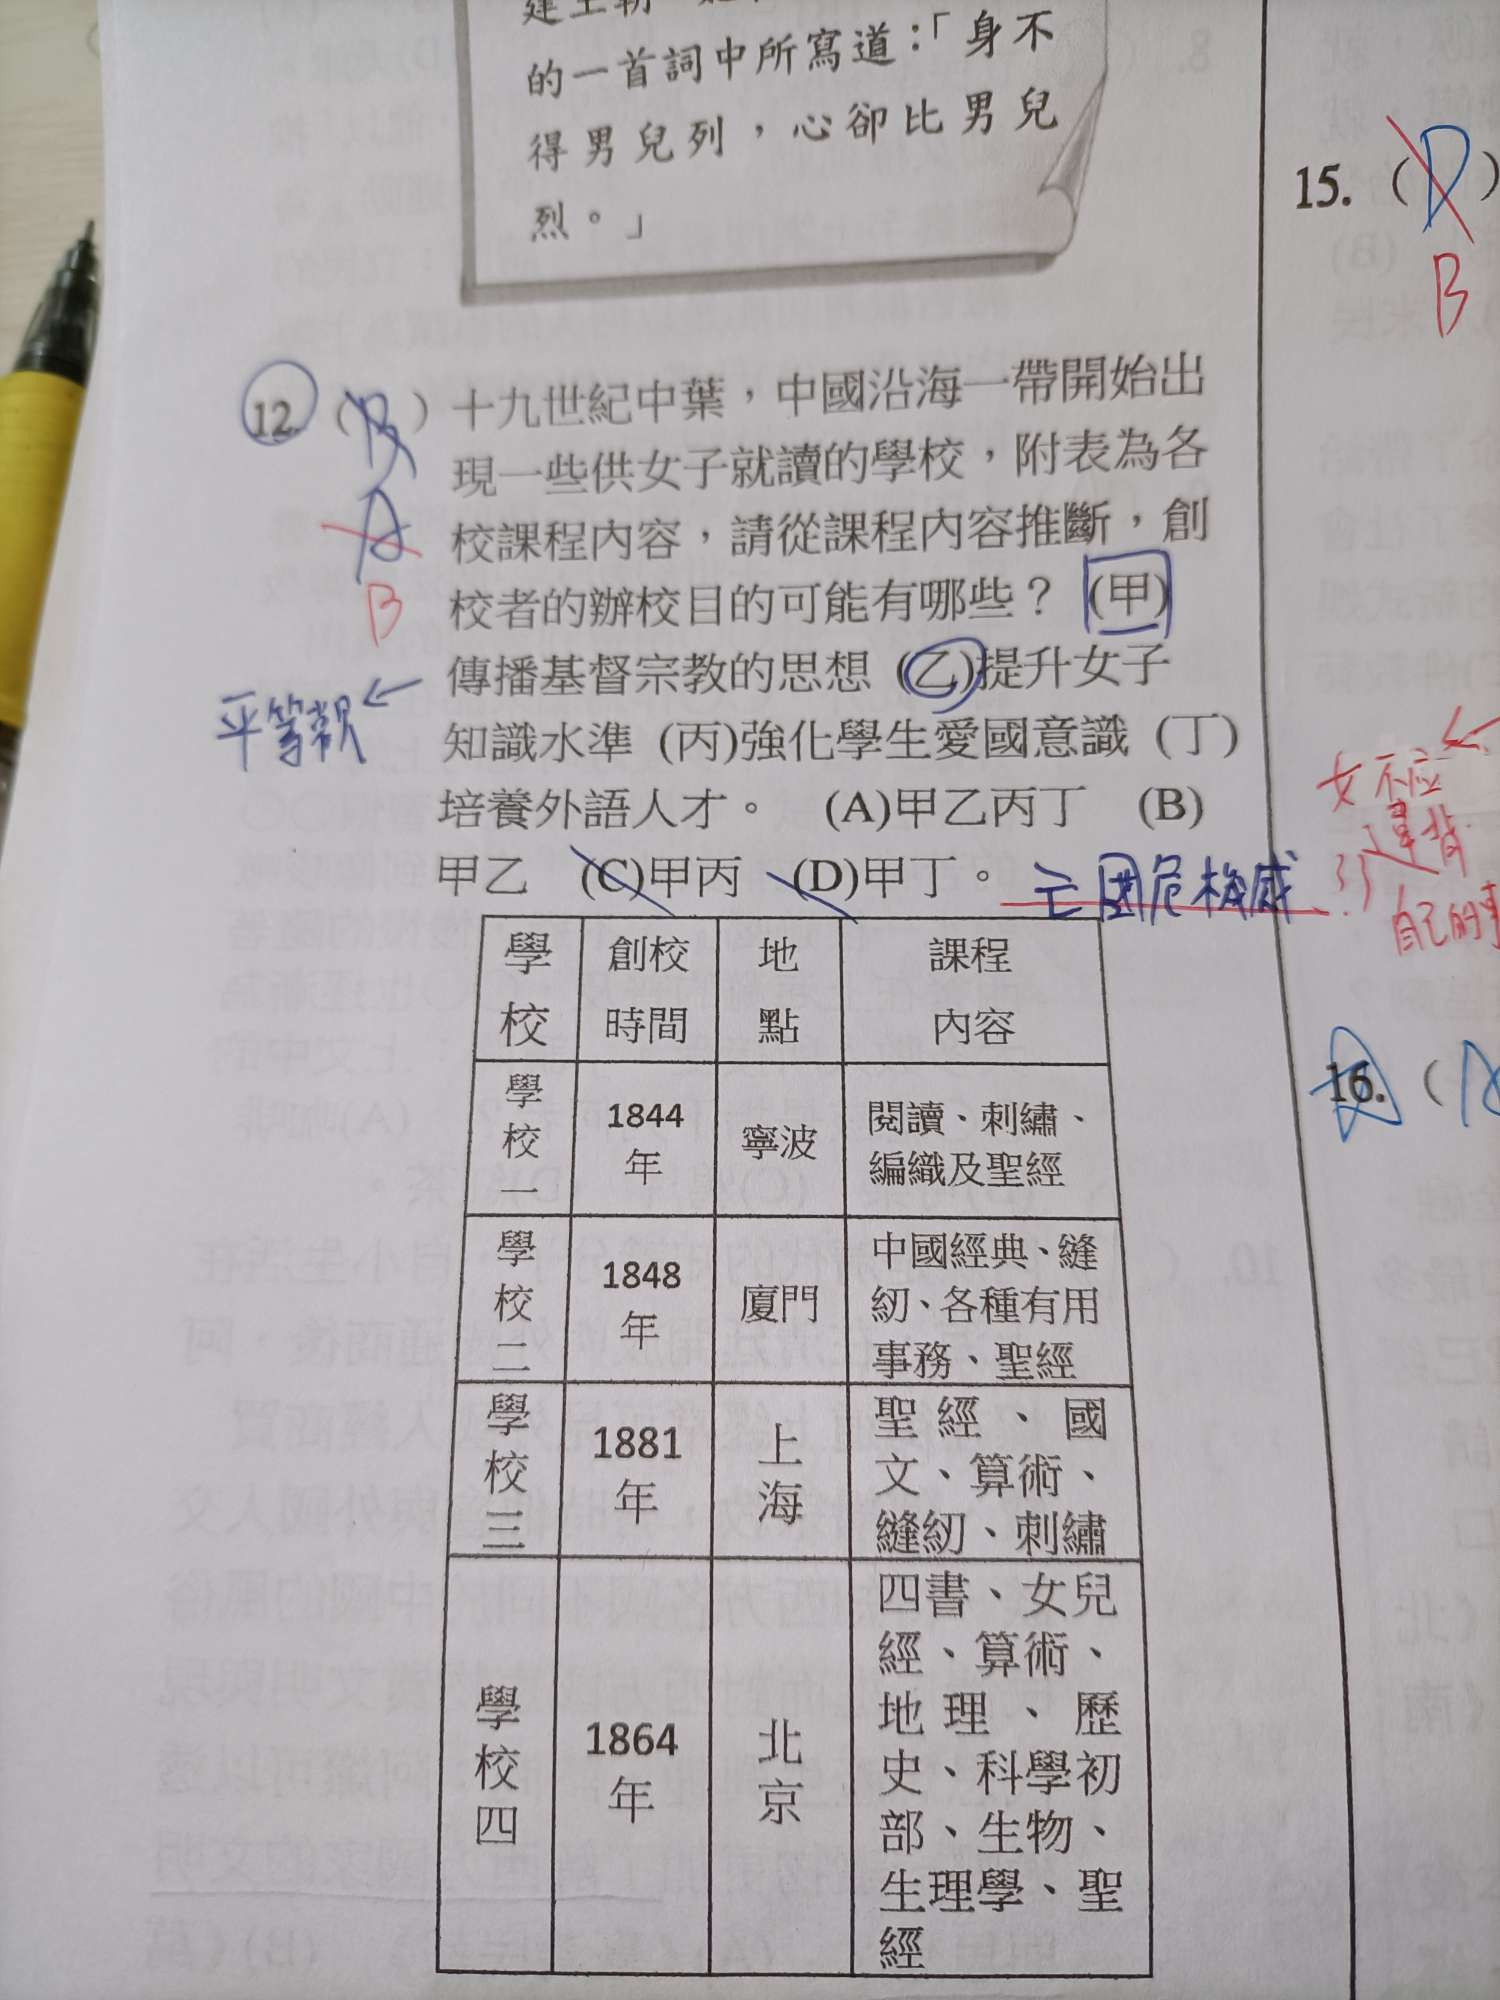 的一首詞中所寫道：「身不
得男兒列，心卻比男兒
烈。」
12.（　）十九世紀中葉，中國沿海一帶開始出
B
現一些供女子就讀的學校，附表為各
A
校課程內容，請從課程內容推斷，創
B
校者的辦校目的可能有哪些？ (甲)
傳播基督宗教的思想 (乙)提升女子
平等觀←
知識水準 (丙)強化學生愛國意識 (丁)
培養外語人才。 (A)甲乙丙丁 (B)
甲乙 (C)甲丙 (D)甲丁。
亡國危機感
學校 創校時間 地點 課程內容
學校一 1844年 寧波 閱讀、刺繡、
編織及聖經
學校二 1848年 廈門 中國經典、縫
紉、各種有用
事務、聖經
學校三 1881年 上海 聖經、國
文、算術、
縫紉、刺繡
學校四 1864年 北京 四書、女兒
經、算術、
地理、歷
史、科學初
部、生物、
生理學、聖
經
15.（D）
B
女不應←
違背
自己的事
16.（A